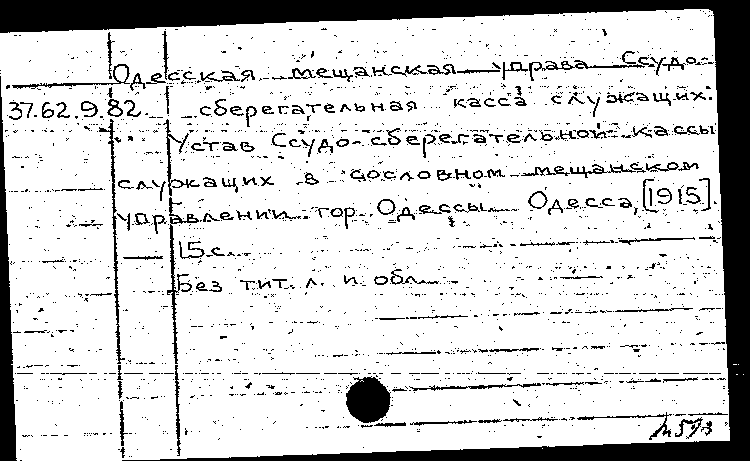 Одесская мещанская управа Ссудо-
37.62.9.82 сберегательная касса служащих.
Устав Ссудо-сберегательной кассы
служащих в сословном мещанском
управлении гор. Одессы. Одесса, [1915].
15 с.
Без тит. л. и обл.